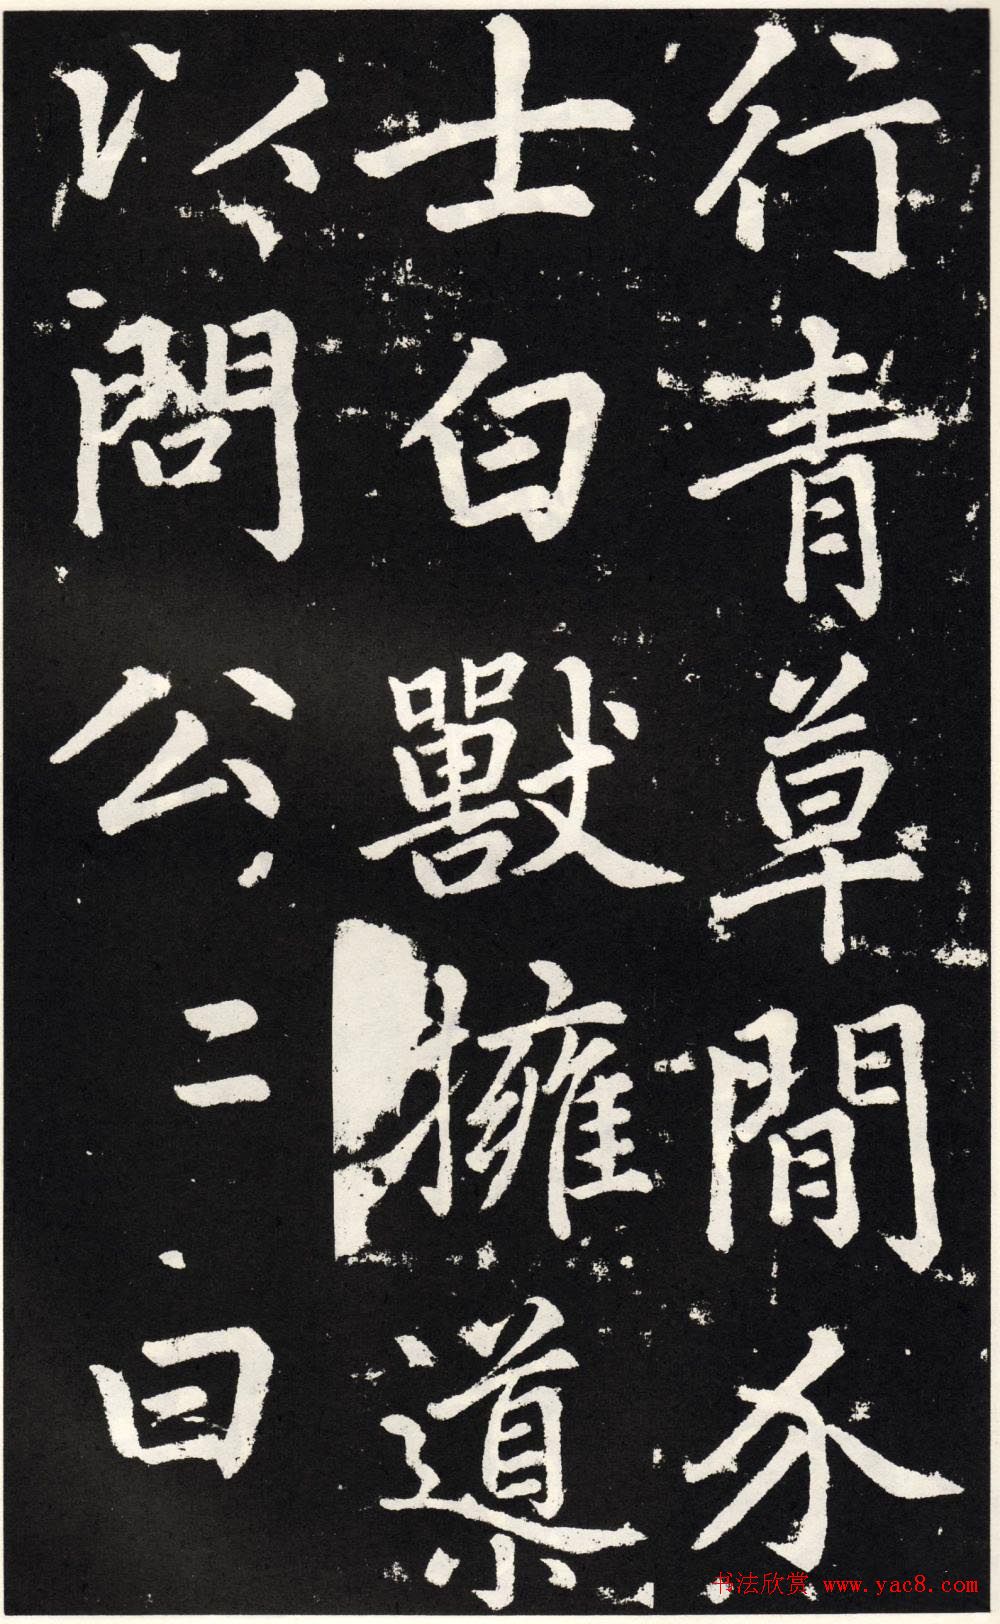 行青草間介
士白獸擁道
以問公二曰
书法欣赏 www.yac8.com